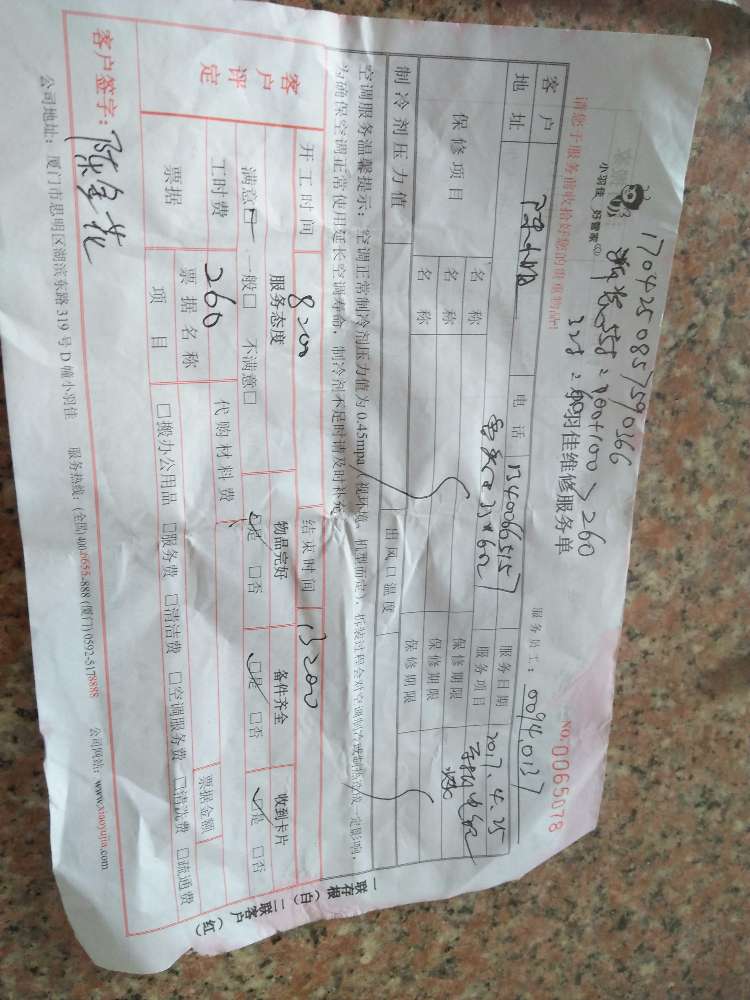 170425085790366
小羽佳 好管家
260
小羽佳维修服务单
服务员工：
NO.0065078
请您于服务前收拾好您的贵重物品！
客户
电话
服务日期 2017.4.25
地址
服务项目
保修项目
名称
保修期限
名称
保修期限
制冷剂压力值
出风口温度
空调服务温馨提示：空调正常制冷剂压力值为0.45mpa（视环境、机型而定），拆装过程会对空调制冷或制热造成一定影响，
为确保空调正常使用延长空调寿命，制冷剂不足时请及时补充。
开工时间 8:00
结束时间 13:00
客户评定
服务态度 物品完好 备件齐全 收到卡片
满意□ 一般□ 不满意□ □是 □否 □是 □否 □是 □否
工时费 260 代购材料费
票据 票据名称 票据金额
项目 □搬办公用品 □服务费 □清洁费 □空调服务费 □清洗费 □疏通费
客户签字：陈金花
公司地址：厦门市思明区湖滨东路319号D幢小羽佳 服务热线：(全国)400-6655-888 (厦门)0592-5178888 公司网站：www.xiaoyujia.com
一联存根（白）二联客户（红）